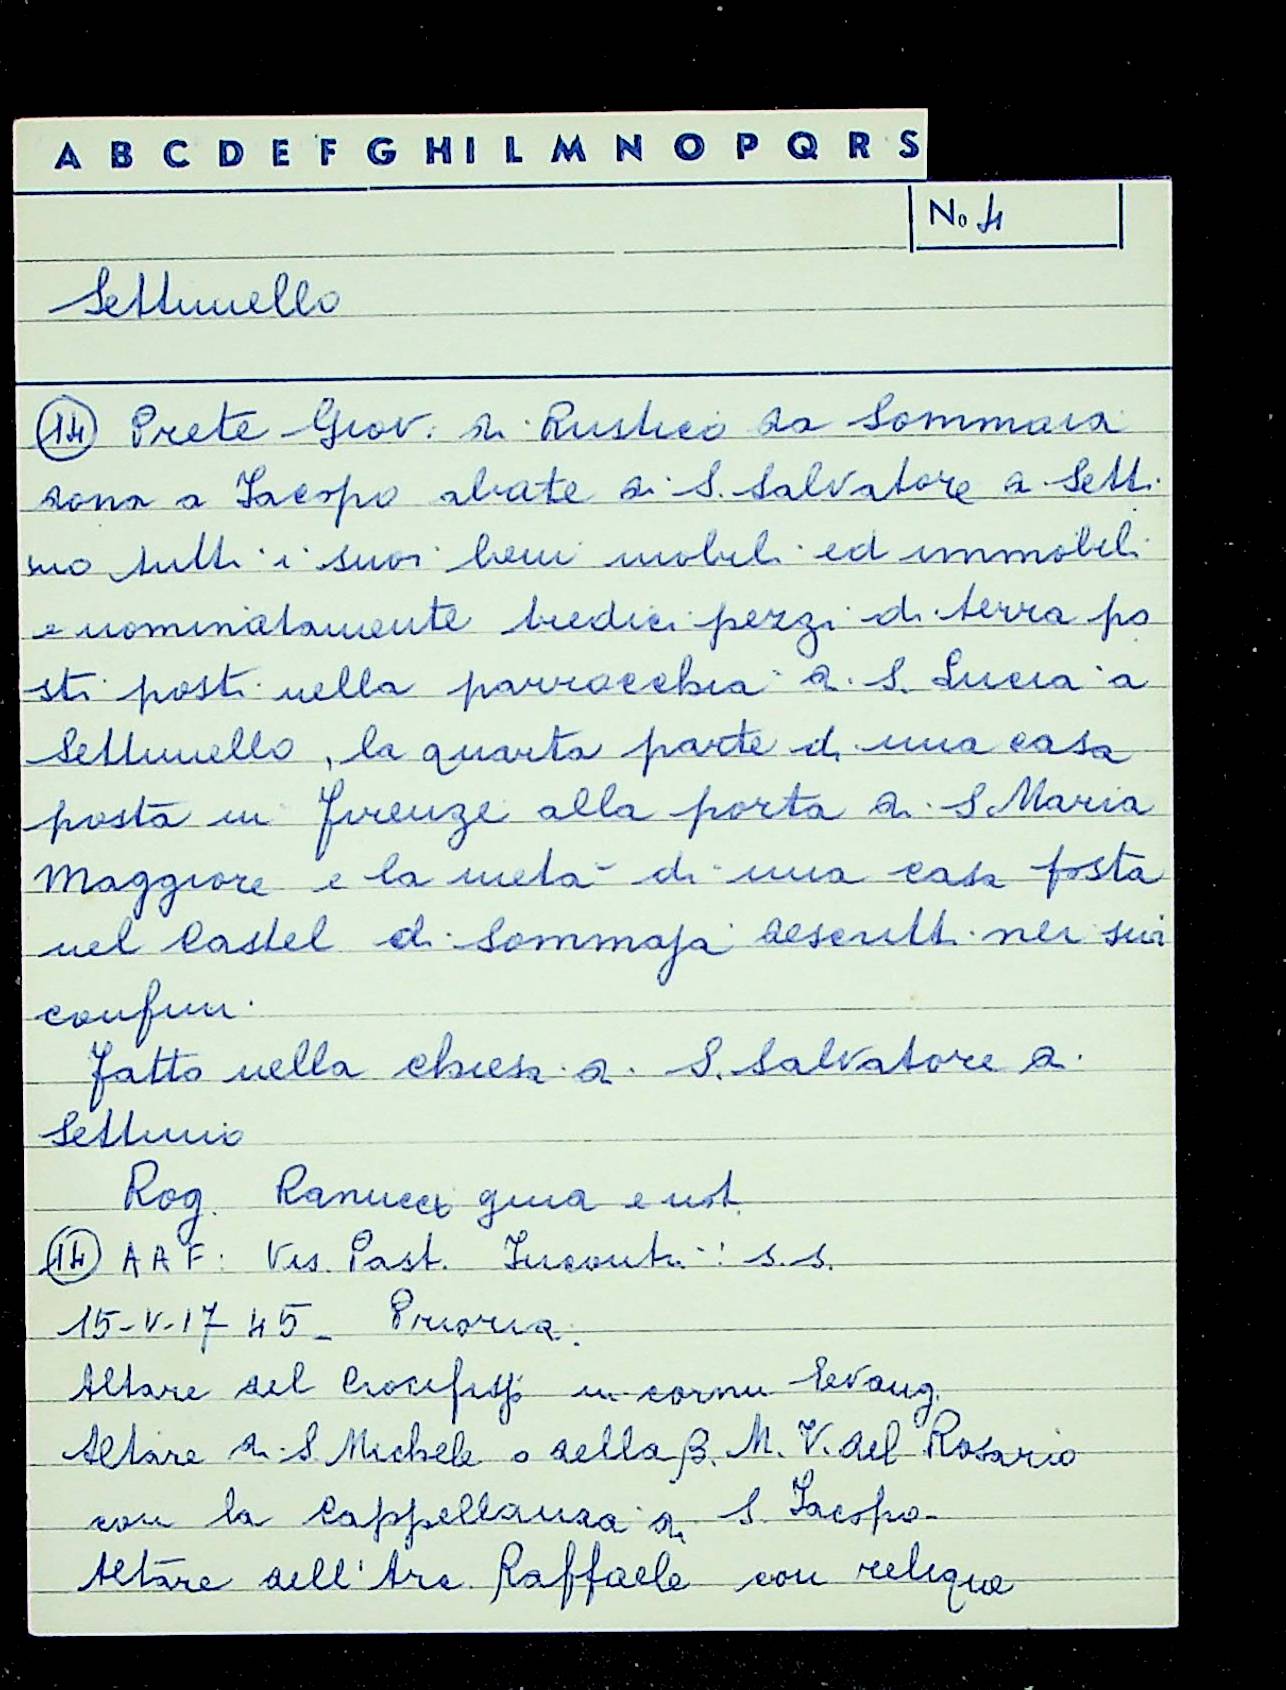 A B C D E F G H I L M N O P Q R S
No 4
Settimello
(14) Prete Giov. di Rustico da Sommaia
dona a Iacopo abate di S. Salvatore a Setti
mo tutti i suoi beni mobili ed immobili
e nominatamente tredici pezzi di terra po
sti posti nella parrocchia di S. Lucia a
Settimello, la quarta parte di una casa
posta in Firenze alla porta di S. Maria
Maggiore e la metà di una casa posta
nel Castel di Sommaja descritti nei suoi
confini.
Fatto nella chiesa di S. Salvatore a
Settimo
Rog. Ranucci giud e not.
(14) AAF: Vis. Past. Incontri: s.s.
15-V-1745_ Prioria:
Altare del Crocifisso in cornu Evang.
Altare di S Michele o della B. M. V. del Rosario
con la Cappellania di S. Iacopo.
Altare dell'Arc. Raffaele con relique